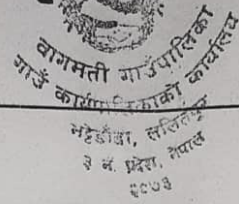 वागमती गाउँपालिका
गाउँ कार्यपालिकाको कार्यालय
भट्टेडाँडा, ललितपुर
३ नं. प्रदेश, नेपाल
२०७३